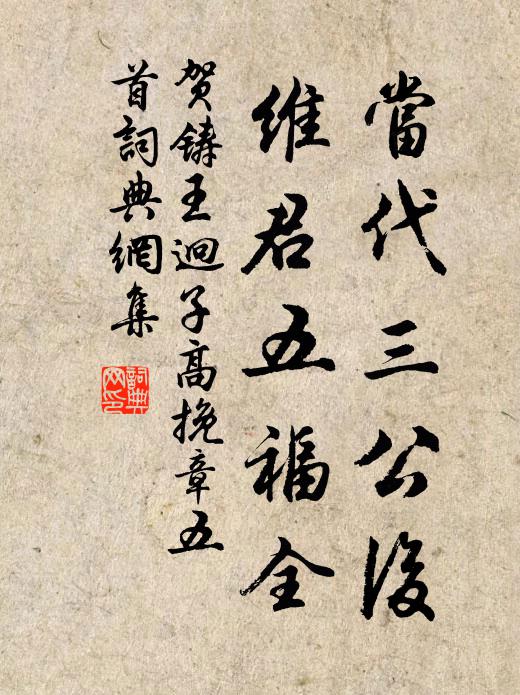 當代三公後
維君五福全
賀鑄王迥子高挽章五
首詞典網集
詞典
网印